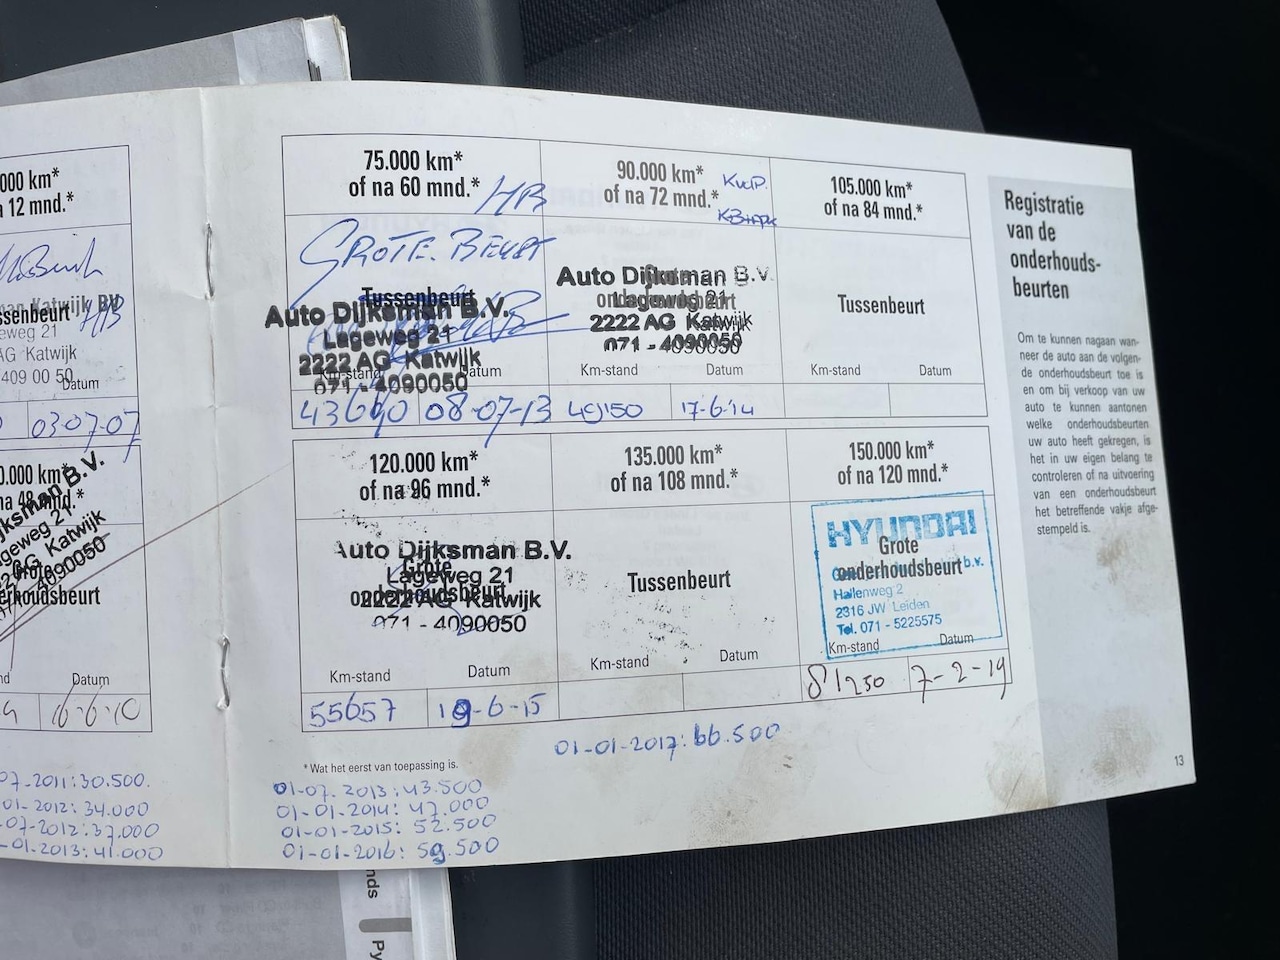 000 km*
12 mnd.*
ssenbeurt
HB
eweg 21
AG Katwijk
409 00 50
Datum
03-07-07
0.000 km*
na 48 mnd.*
jksman B.V.
ageweg 21
Katwijk
4090050
erhoudsbeurt
Datum
16-6-10
07-2011:30.500.
01-2012:34.000
-07-2012:37.000
-01-2013:41.000
75.000 km*
of na 60 mnd.*
HB
GROTE. BEURT
Tussenbeurt
Auto Dijksman B.V.
Lageweg 21
2222 AG Katwijk
071 - 4090050
Km-stand
Datum
43690
08-07-13
90.000 km*
of na 72 mnd.*
Auto Dijksman B.V.
Lageweg 21
2222 AG Katwijk
071 - 4090050
Km-stand
Datum
49150
17-6-14
105.000 km*
of na 84 mnd.*
Tussenbeurt
Km-stand
Datum
120.000 km*
of na 96 mnd.*
Auto Dijksman B.V.
Grote
Lageweg 21
onderhoudsbeurt
2222 AG Katwijk
071 - 4090050
Km-stand
Datum
55657
19-6-15
135.000 km*
of na 108 mnd.*
Tussenbeurt
Km-stand
Datum
150.000 km*
of na 120 mnd.*
HYUNDAI
Grote
onderhoudsbeurt
b.v.
Hallenweg 2
2316 JW Leiden
Tel. 071 - 5225575
Km-stand
Datum
81250
7-2-19
01-01-2017: 66.500
* Wat het eerst van toepassing is.
01-07-2013:43.500
01-01-2014: 47.000
01-01-2015: 52.500
01-01-2016: 59.500
Registratie
van de
onderhouds-
beurten
Om te kunnen nagaan wan-
neer de auto aan de volgen-
de onderhoudsbeurt toe is
en om bij verkoop van uw
auto te kunnen aantonen
welke onderhoudsbeurten
uw auto heeft gekregen, is
het in uw eigen belang te
controleren of na uitvoering
van een onderhoudsbeurt
het betreffende vakje afge-
stempeld is.
13
nds
Py